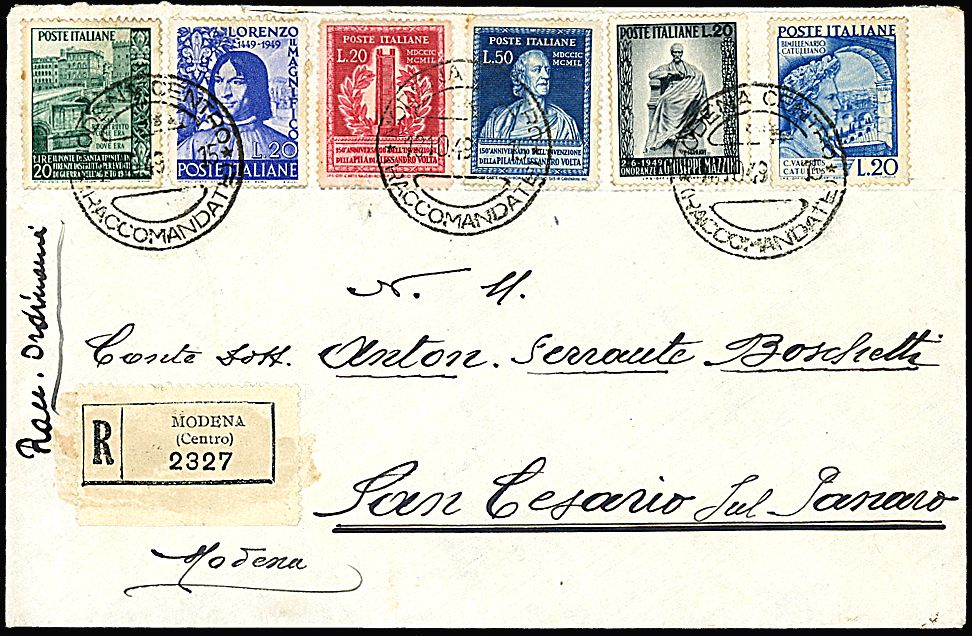 POSTE ITALIANE
20 LIRE PONTE DI SANTA TRINITA IN
DOVE ERA
LORENZO
IL MAGNIFICO
1449-1949
L.20
POSTE ITALIANE
POSTE ITALIANE
L.20
MDCCIC
MCMIL
150° ANNIVERSARIO DELL'INVENZIONE
DELLA PILA DI ALESSANDRO VOLTA
POSTE ITALIANE
L.50
MDCCIC
MCMIL
150° ANNIVERSARIO DELL'INVENZIONE
DELLA PILA DI ALESSANDRO VOLTA
POSTE ITALIANE L.20
2-6-1949
ONORANZE A GIUSEPPE MAZZINI
POSTE ITALIANE
BIMILLENARIO
CATULLIANO
C. VALERIUS
CATULLUS
L.20
MODENA CENTRO
(RACCOMANDATE)
MODENA CENTRO
(RACCOMANDATE)
MODENA CENTRO
(RACCOMANDATE)
N. H.
Conte Dott. Anton. Serrante Boschetti
San Cesario Sul Panaro
Modena
R
MODENA
(Centro)
2327